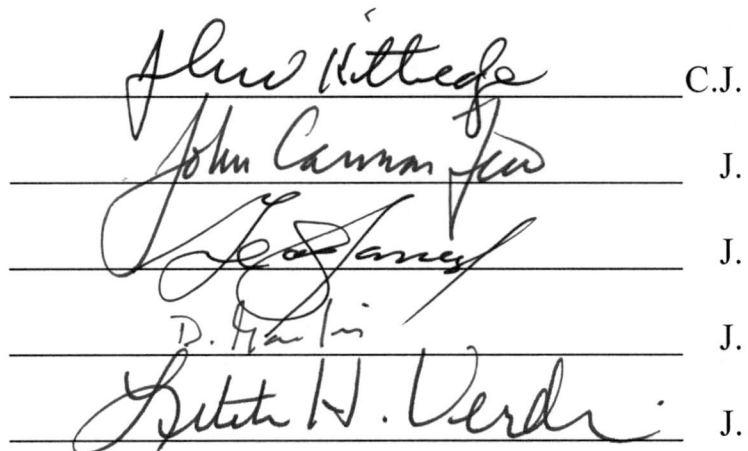 John Kittredge C.J.
John Cannon Few J.
Geo James J.
D. J.
Letitia H. Verdin J.